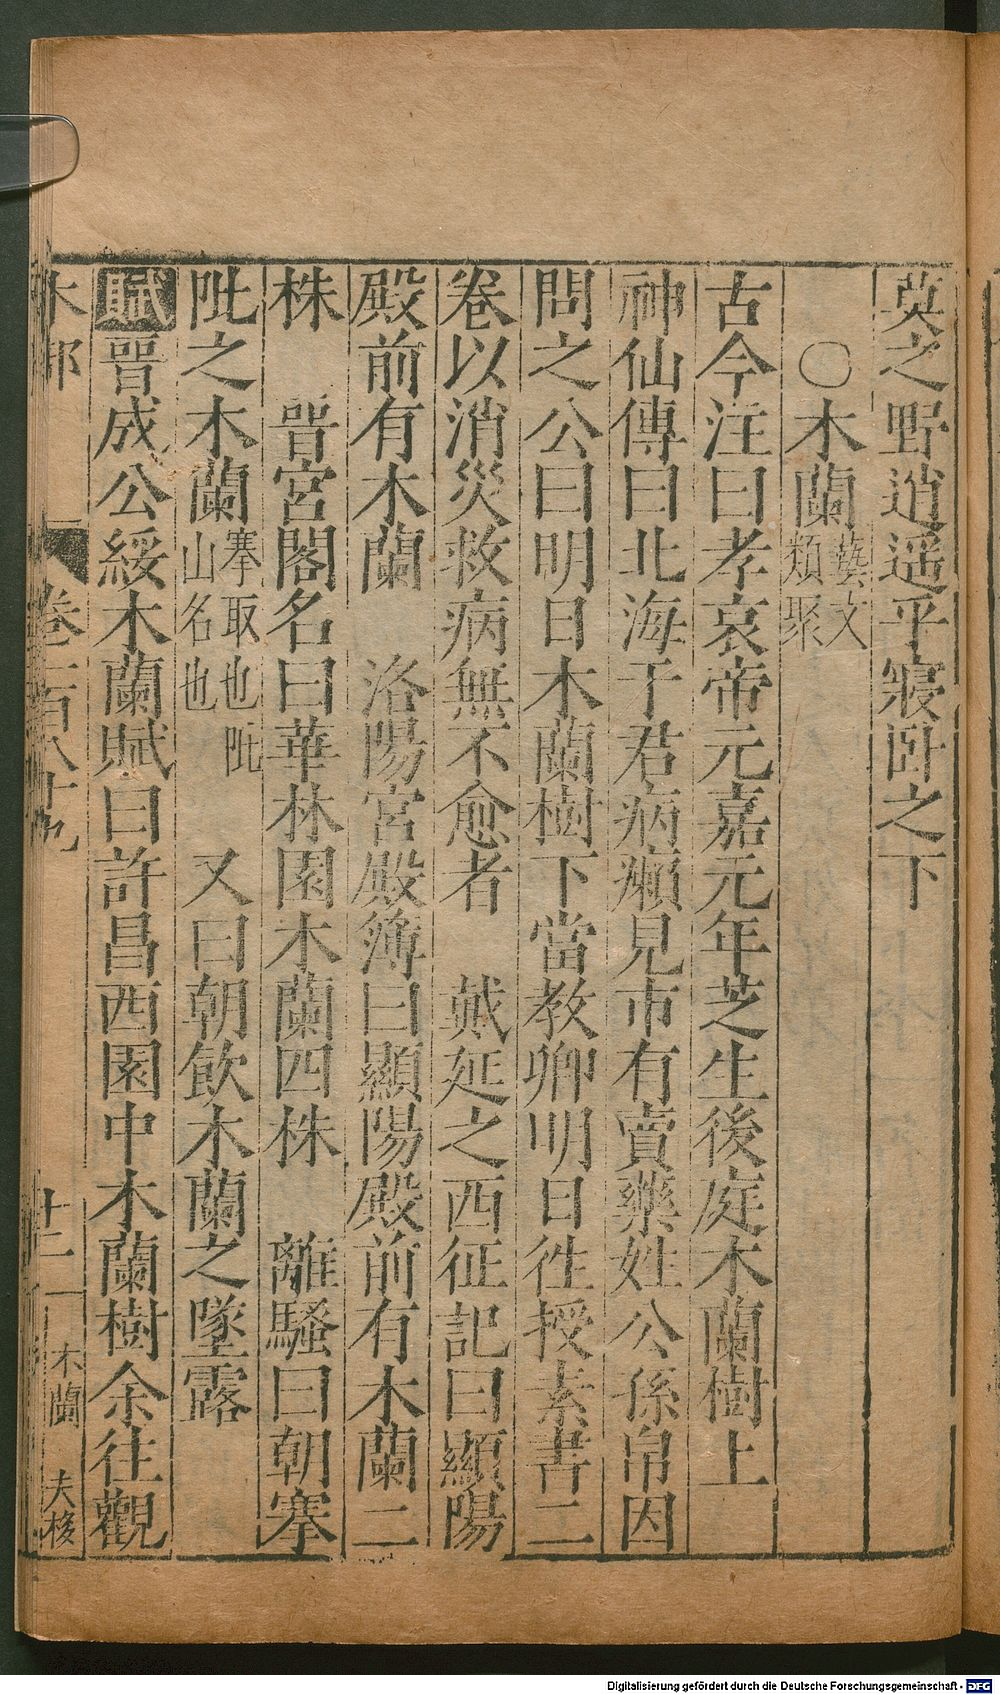 莫之野逍遥乎寢卧之下
〇木蘭藝文類聚
古今注曰孝哀帝元嘉元年芝生後庭木蘭樹上
神仙傳曰北海于君病癩見市有賣藥姓公孫帛因
問之公曰明日木蘭樹下當教卿明日徃授素書二
卷以消災救病無不愈者　戴延之西征記曰顯陽
殿前有木蘭　洛陽宮殿簿曰顯陽殿前有木蘭二
株　晉宮閣名曰華林園木蘭四株　離騷曰朝搴
阰之木蘭搴取也阰山名也　又曰朝飲木蘭之墜露
賦晉成公綏木蘭賦曰許昌西園中木蘭樹余往觀
木部　卷一百八十九　十二　木蘭　夫栘
Digitalisierung gefördert durch die Deutsche Forschungsgemeinschaft - DFG